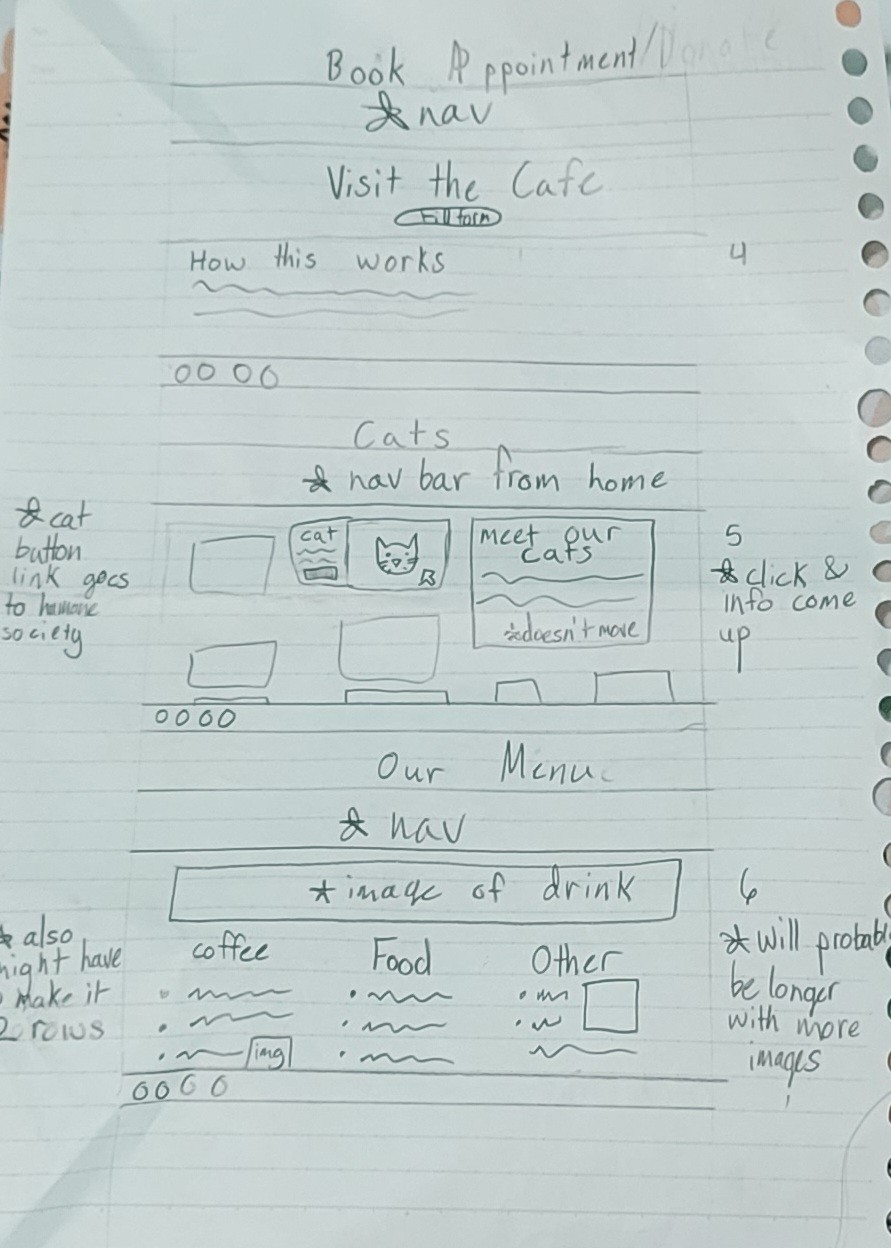 Book Appointment/Donate
☆ nav
Visit the Cafe
Fill form
How this works
4
Cats
☆ nav bar from home
☆ cat
button
link goes
to humane
society
cat
meet our
cats
☆ doesn't move
5
☆ click &
info come
up
Our Menu
☆ nav
☆ image of drink
6
☆ also
might have
make it
2 rows
coffee
Food
Other
img
☆ Will probabl
be longer
with more
images